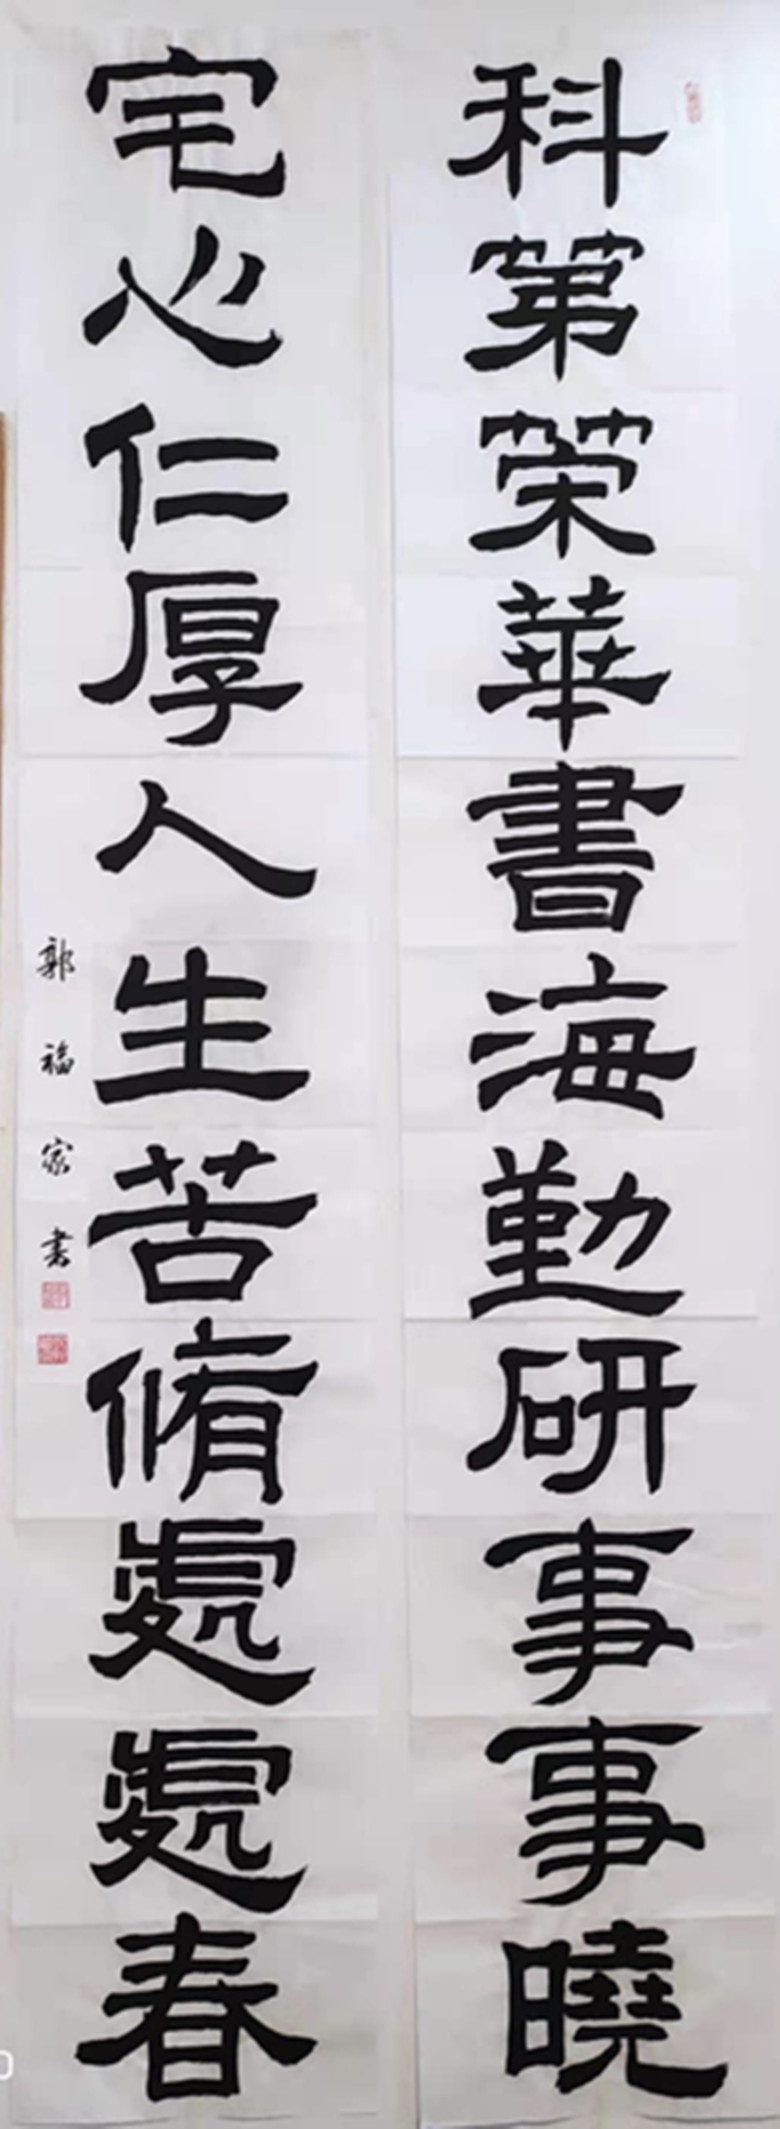 科第荣華書海勤研事事曉
宅心仁厚人生苦脩處處春
郭福家书